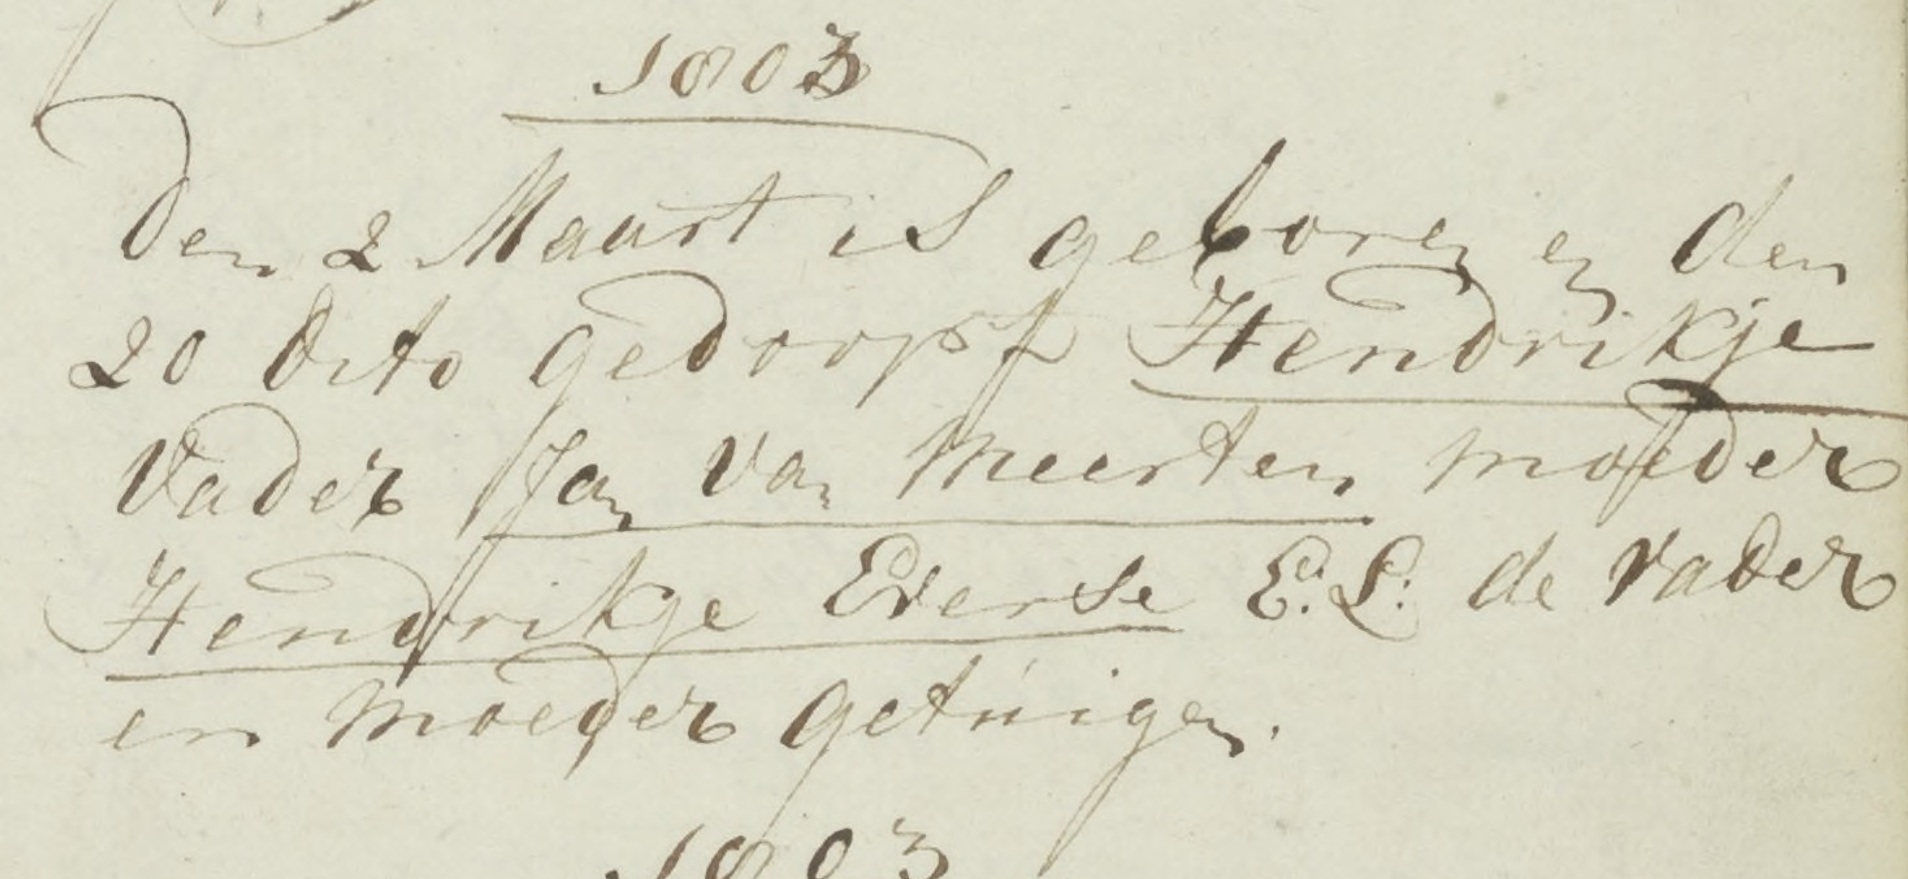 1803
Den 2 Maart is geboren en den
20 dito gedoopt Hendrikje
Vader Jan van Meerten moeder
Hendrikje Everse E: L: de vader
en moeder getuigen.
1803